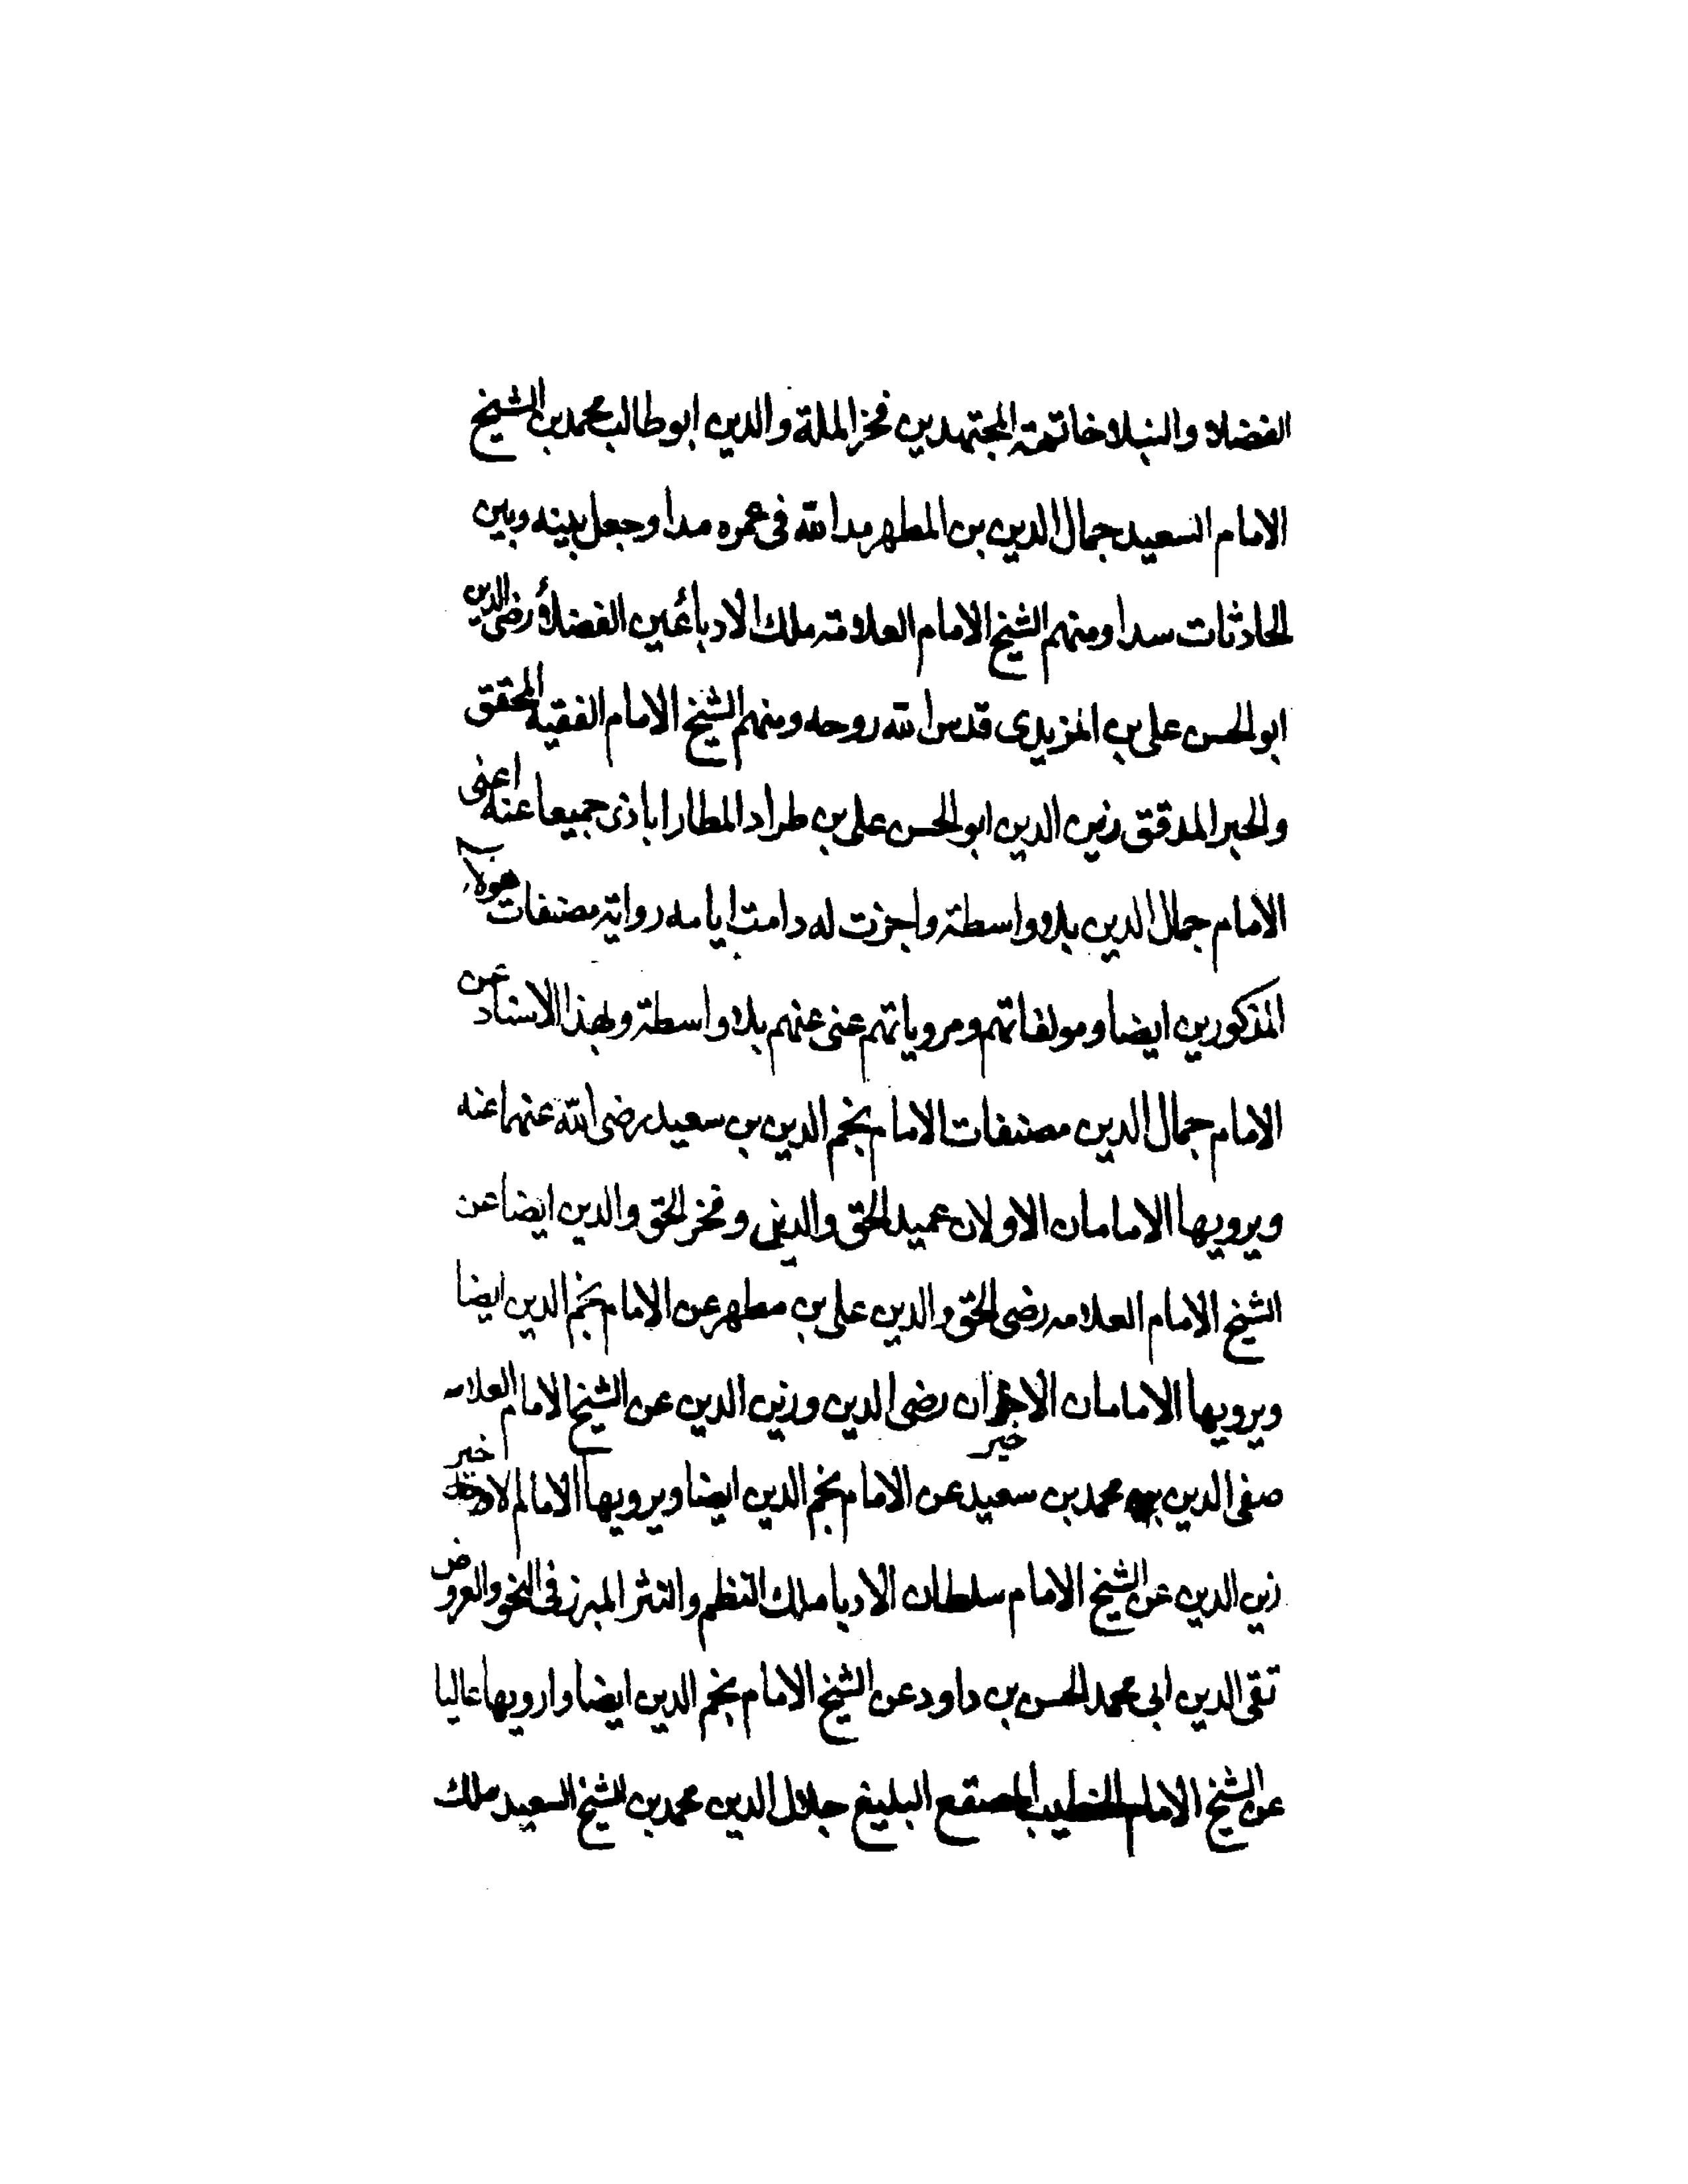 الفضلاء والنبلاء خاتمة المجتهدين فخر الملة والدين ابو طالب محمد بن الشيخ
الامام السعيد جمال الدين بن المطهر مد الله فى عمره مدا وجعل بينه وبين
الحادثات سدا ومنهم الشيخ الامام العلامة ملك الادباء عين الفضلاء رضى الدين
ابو الحسن على بن المزيدى قدس الله روحه ومنهم الشيخ الامام الفقيه المحقق
والحبر المدقق زين الدين ابو الحسن على بن طراد المطارابادى جميعا عنه اعنى
الامام جمال الدين بلا واسطة واجزت له دامت ايامه رواية مصنفات هولاء
المذكورين ايضا ومولفاتهم ومروياتهم عنى عنهم بلا واسطة وبهذا الاسناد عن
الامام جمال الدين مصنفات الامام نجم الدين بن سعيد رضى الله عنهما عنه
ويرويها الامامان الاولان عميد الحق والدين وفخر الحق والدين ايضا عن
الشيخ الامام العلامه رضى الحق والدين على بن مطهر عن الامام نجم الدين ايضا
ويرويها الامامان الاخيران رضى الدين وزين الدين عن الشيخ الامام العلامه
صفى الدين محمد بن سعيد عن الامام نجم الدين ايضا ويرويها الامام الاخير
زين الدين عن الشيخ الامام سلطان الادبا ملك النظم والنثر المبرز فى النحو والعروض
تقى الدين ابى محمد الحسن بن داود عن الشيخ الامام نجم الدين ايضا وارويها عاليا
عن الشيخ الامام الخطيب المصقع البليغ جلال الدين محمد بن الشيخ السعيد ملك